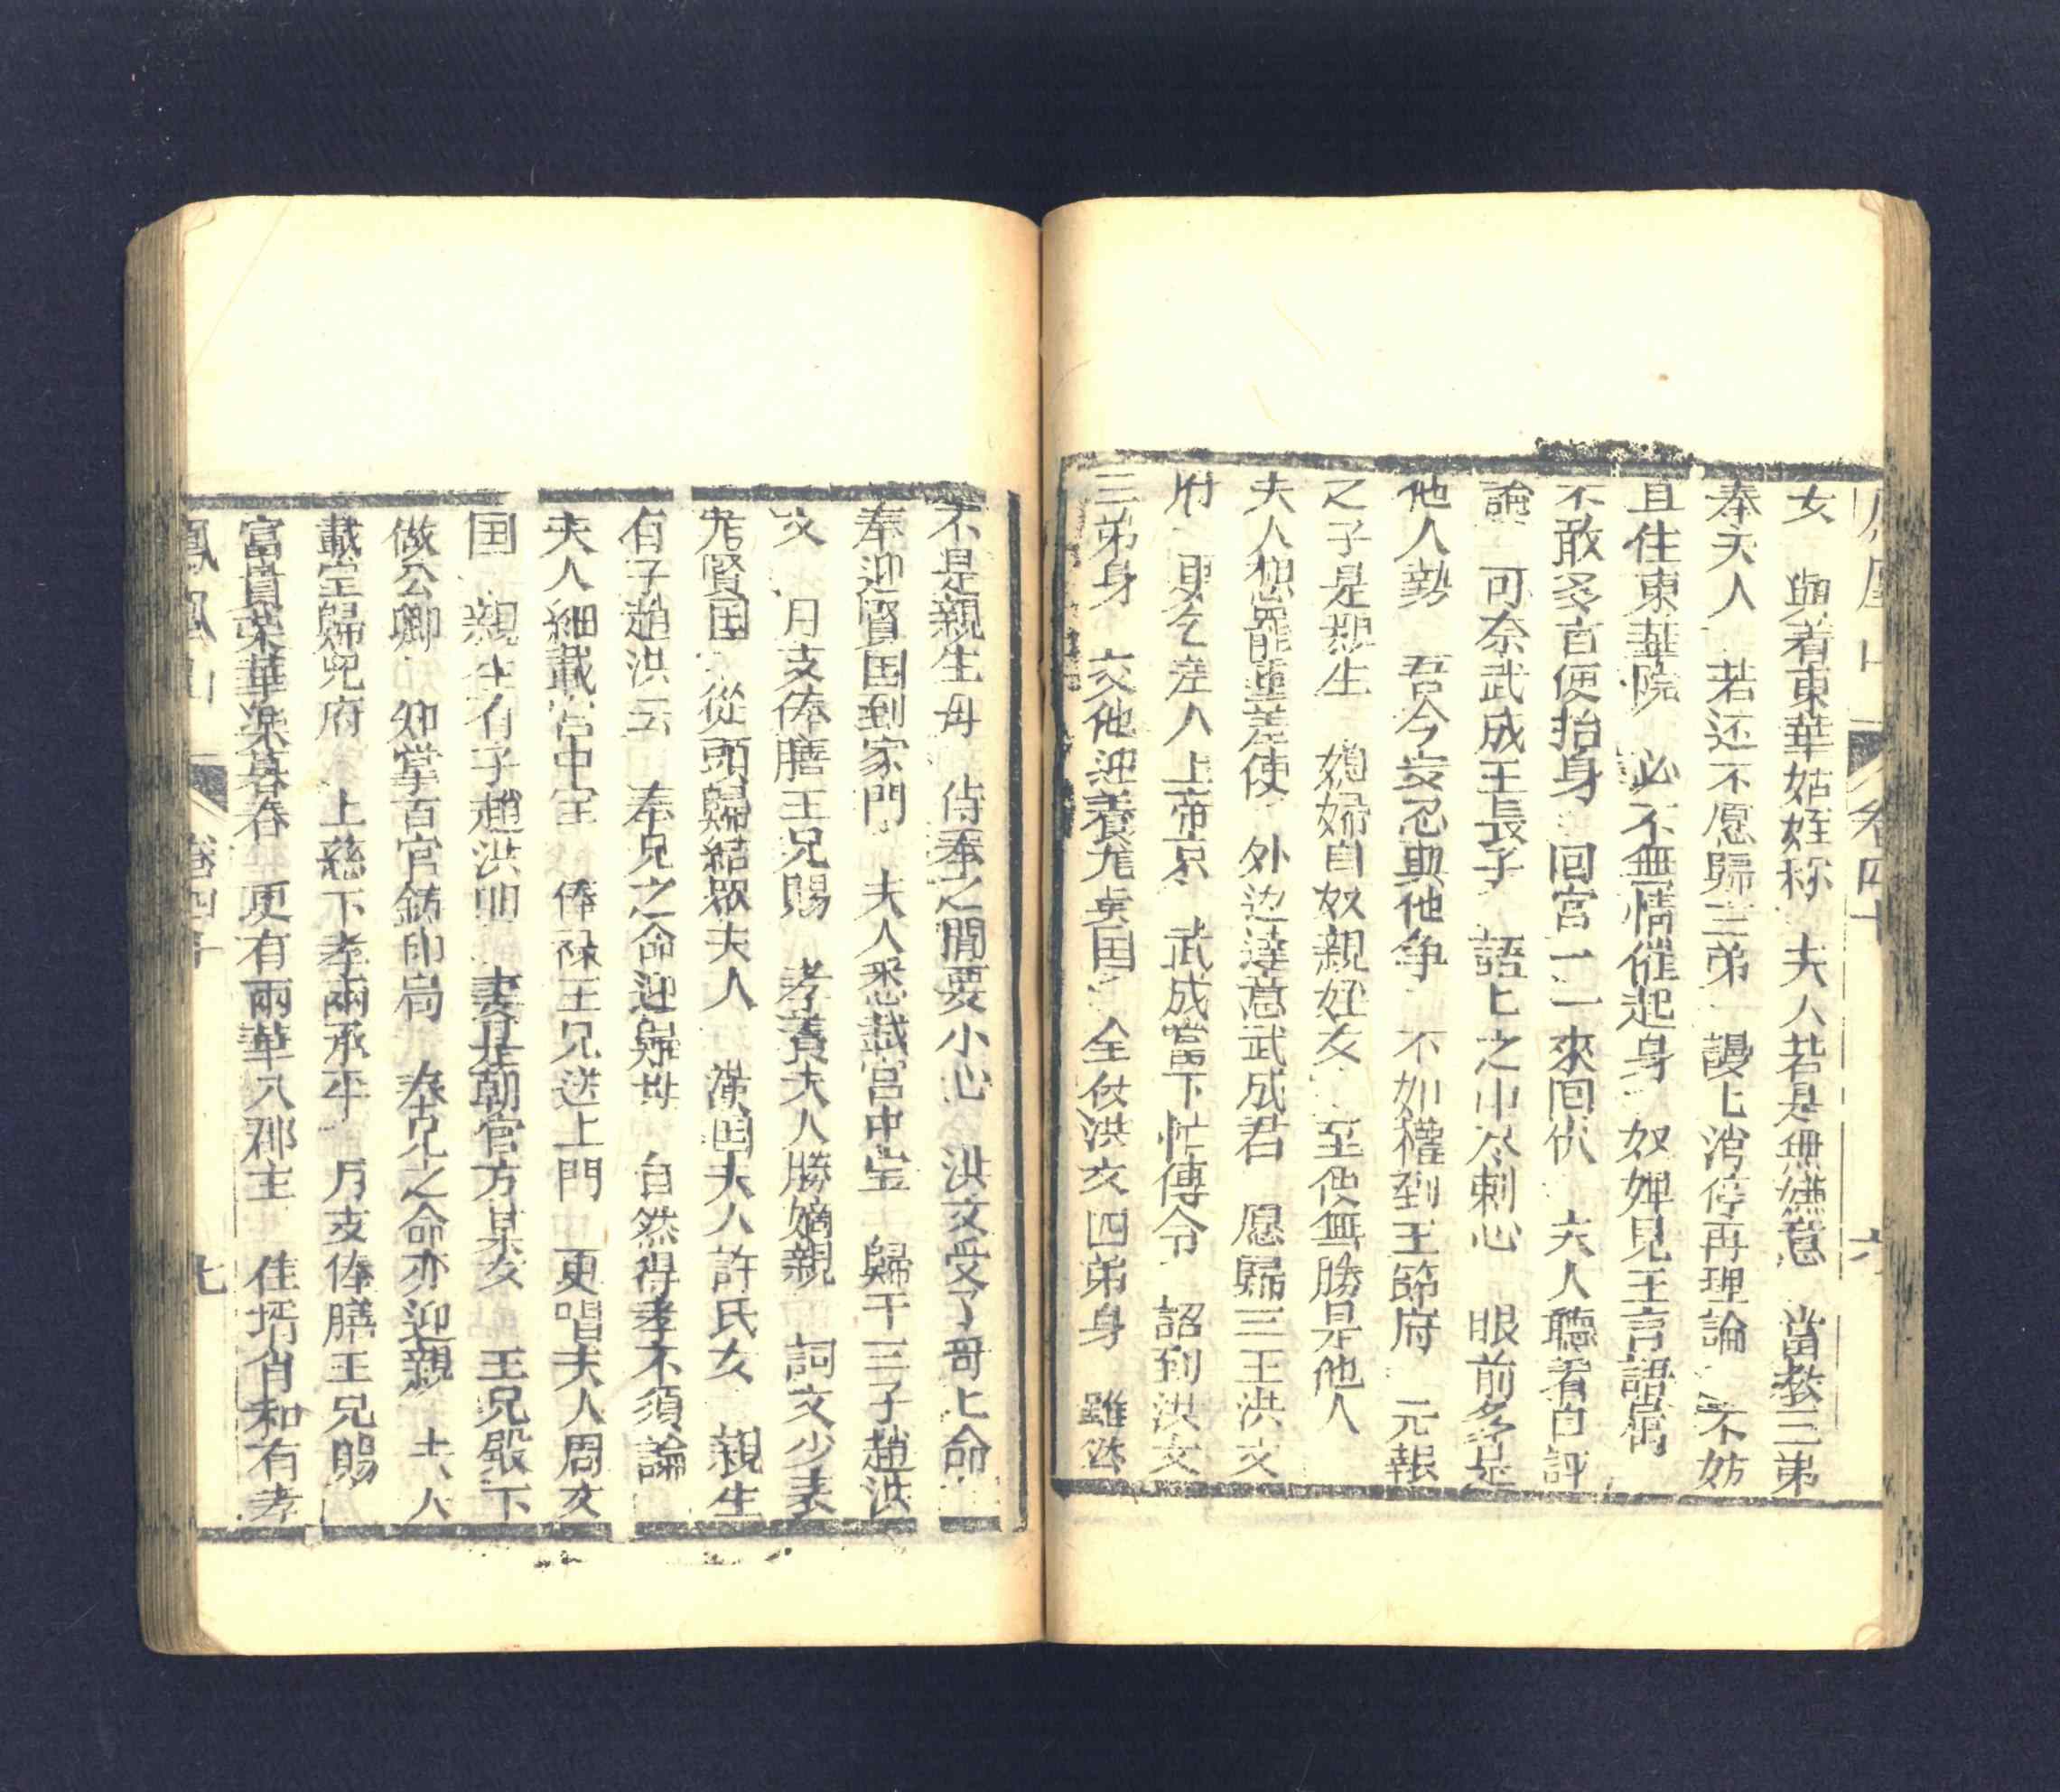 鳳凰山 卷四十 六
女 與着東華姑姪称 夫人若是無嫌意 當教三弟
奉夫人 若还不愿歸三弟 謾匕消停再理論 不妨
且住東華院 必不無情催起身 奴婢見王言語厲
不敢多言便抬身 回宮一一來回伏 夫人聽着自評
論 可奈武成王長子 語匕之中尽刺心 眼前多是
他人勢 吾今安忍與他争 不如權到王節府 元報
之子是親生 媳婦自奴親姪女 至使無勝是他人
夫人想罷重差使 外边達意武成君 愿歸三王洪文
府 更乞差人上帝京 武成當下忙傳令 詔到洪文
三弟身 交他迎養尤眞国 全仗洪文四弟身 雖然
不是親生母 侍奉之間要小心 洪文受了哥匕命
奉迎賢国到家門 夫人悉载宮中宝 歸于三子趙洪
文 月支俸膳王兄賜 孝養夫人勝嫡親 詞文少表
尤賢国 從頭歸結眾夫人 漢国夫人許氏女 親生
有子趙洪云 奉兄之命迎歸母 自然得孝不須論
夫人細載宮中宝 俸祿王兄送上門 更唱夫人周女
国 親生有子趙洪 妻是朝官方某女 王兄殿下
做公卿 卿掌百官鋳印局 奉兄之命亦迎親 夫人
載宝歸兒府 上慈下孝兩承平 月支俸膳王兄賜
富貴荣華楽暮春 更有兩華人郡主 佳壻肖和有孝
鳳凰山 卷四十 七